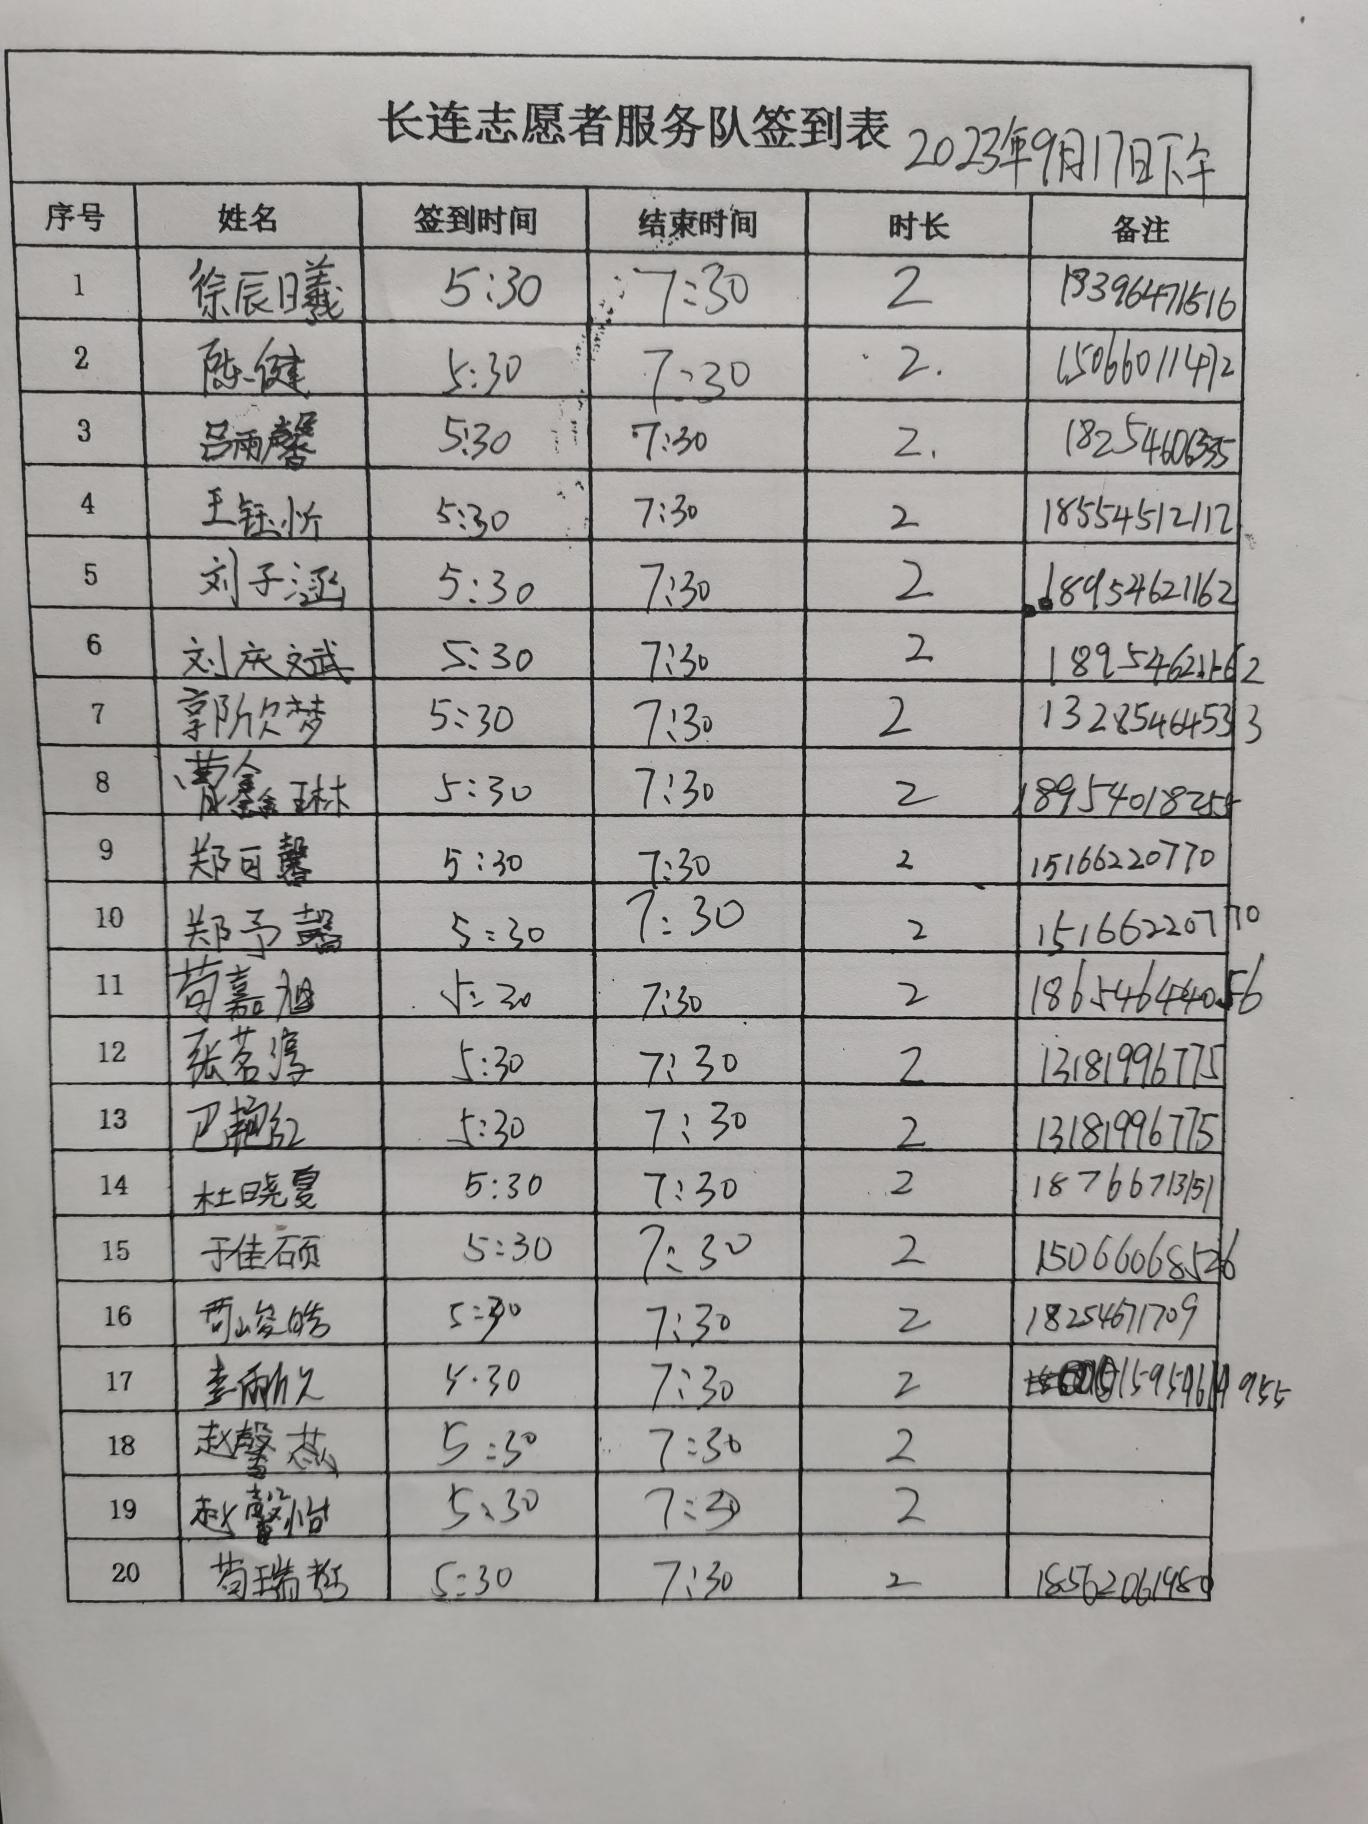 长连志愿者服务队签到表 2023年9月17日下午
序号 姓名 签到时间 结束时间 时长 备注
1 徐辰曦 5:30 7:30 2 18396471516
2 陈健 5:30 7:30 2. 15066011472
3 吕雨馨 5:30 7:30 2. 18254606335
4 王钰忻 5:30 7:30 2 18554512112
5 刘子涵 5:30 7:30 2 18954621162
6 刘庆斌 5:30 7:30 2 18954621162
7 郭欣梦 5:30 7:30 2 13285464533
8 曹鑫琳 5:30 7:30 2 18954018255
9 郑日馨 5:30 7:30 2 15166220770
10 郑予馨 5:30 7:30 2 15166220770
11 苟嘉旭 5:30 7:30 2 18654644056
12 张茗淳 5:30 7:30 2 13181996775
13 巴艳红 5:30 7:30 2 13181996775
14 杜晓夏 5:30 7:30 2 18766713151
15 于佳硕 5:30 7:30 2 15066068526
16 苟峻皓 5:30 7:30 2 18254671709
17 李雨欣 5:30 7:30 2
18 赵馨 5:30 7:30 2
19 赵馨怡 5:30 7:30 2
20 苟瑞哲 5:30 7:30 2 18562061980